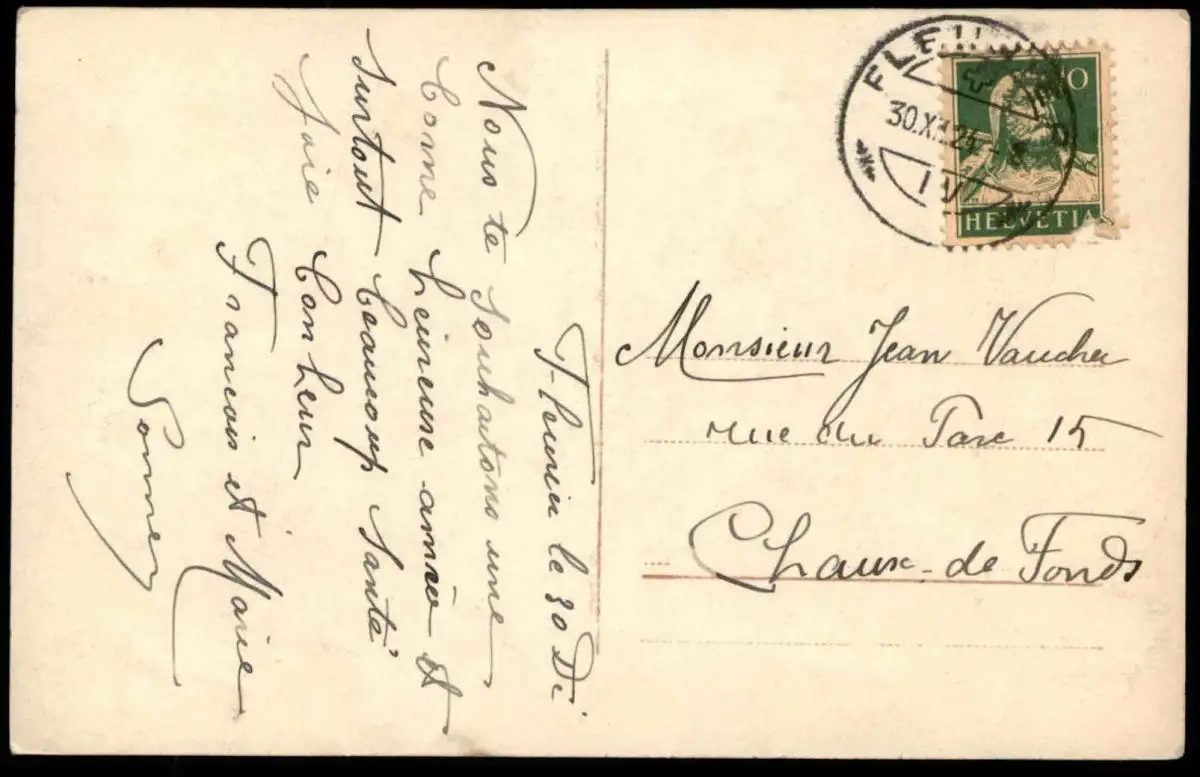 Fleurier le 30 Dé
Nous te Souhaitons une
bonne heureuse année et
surtout beaucoup Santé
Joie bonheur
Francois et Marie
10
HELVETIA
30.XII.
Monsieur Jean Vaucher
rue du Parc 15
Chaux-de Fonds